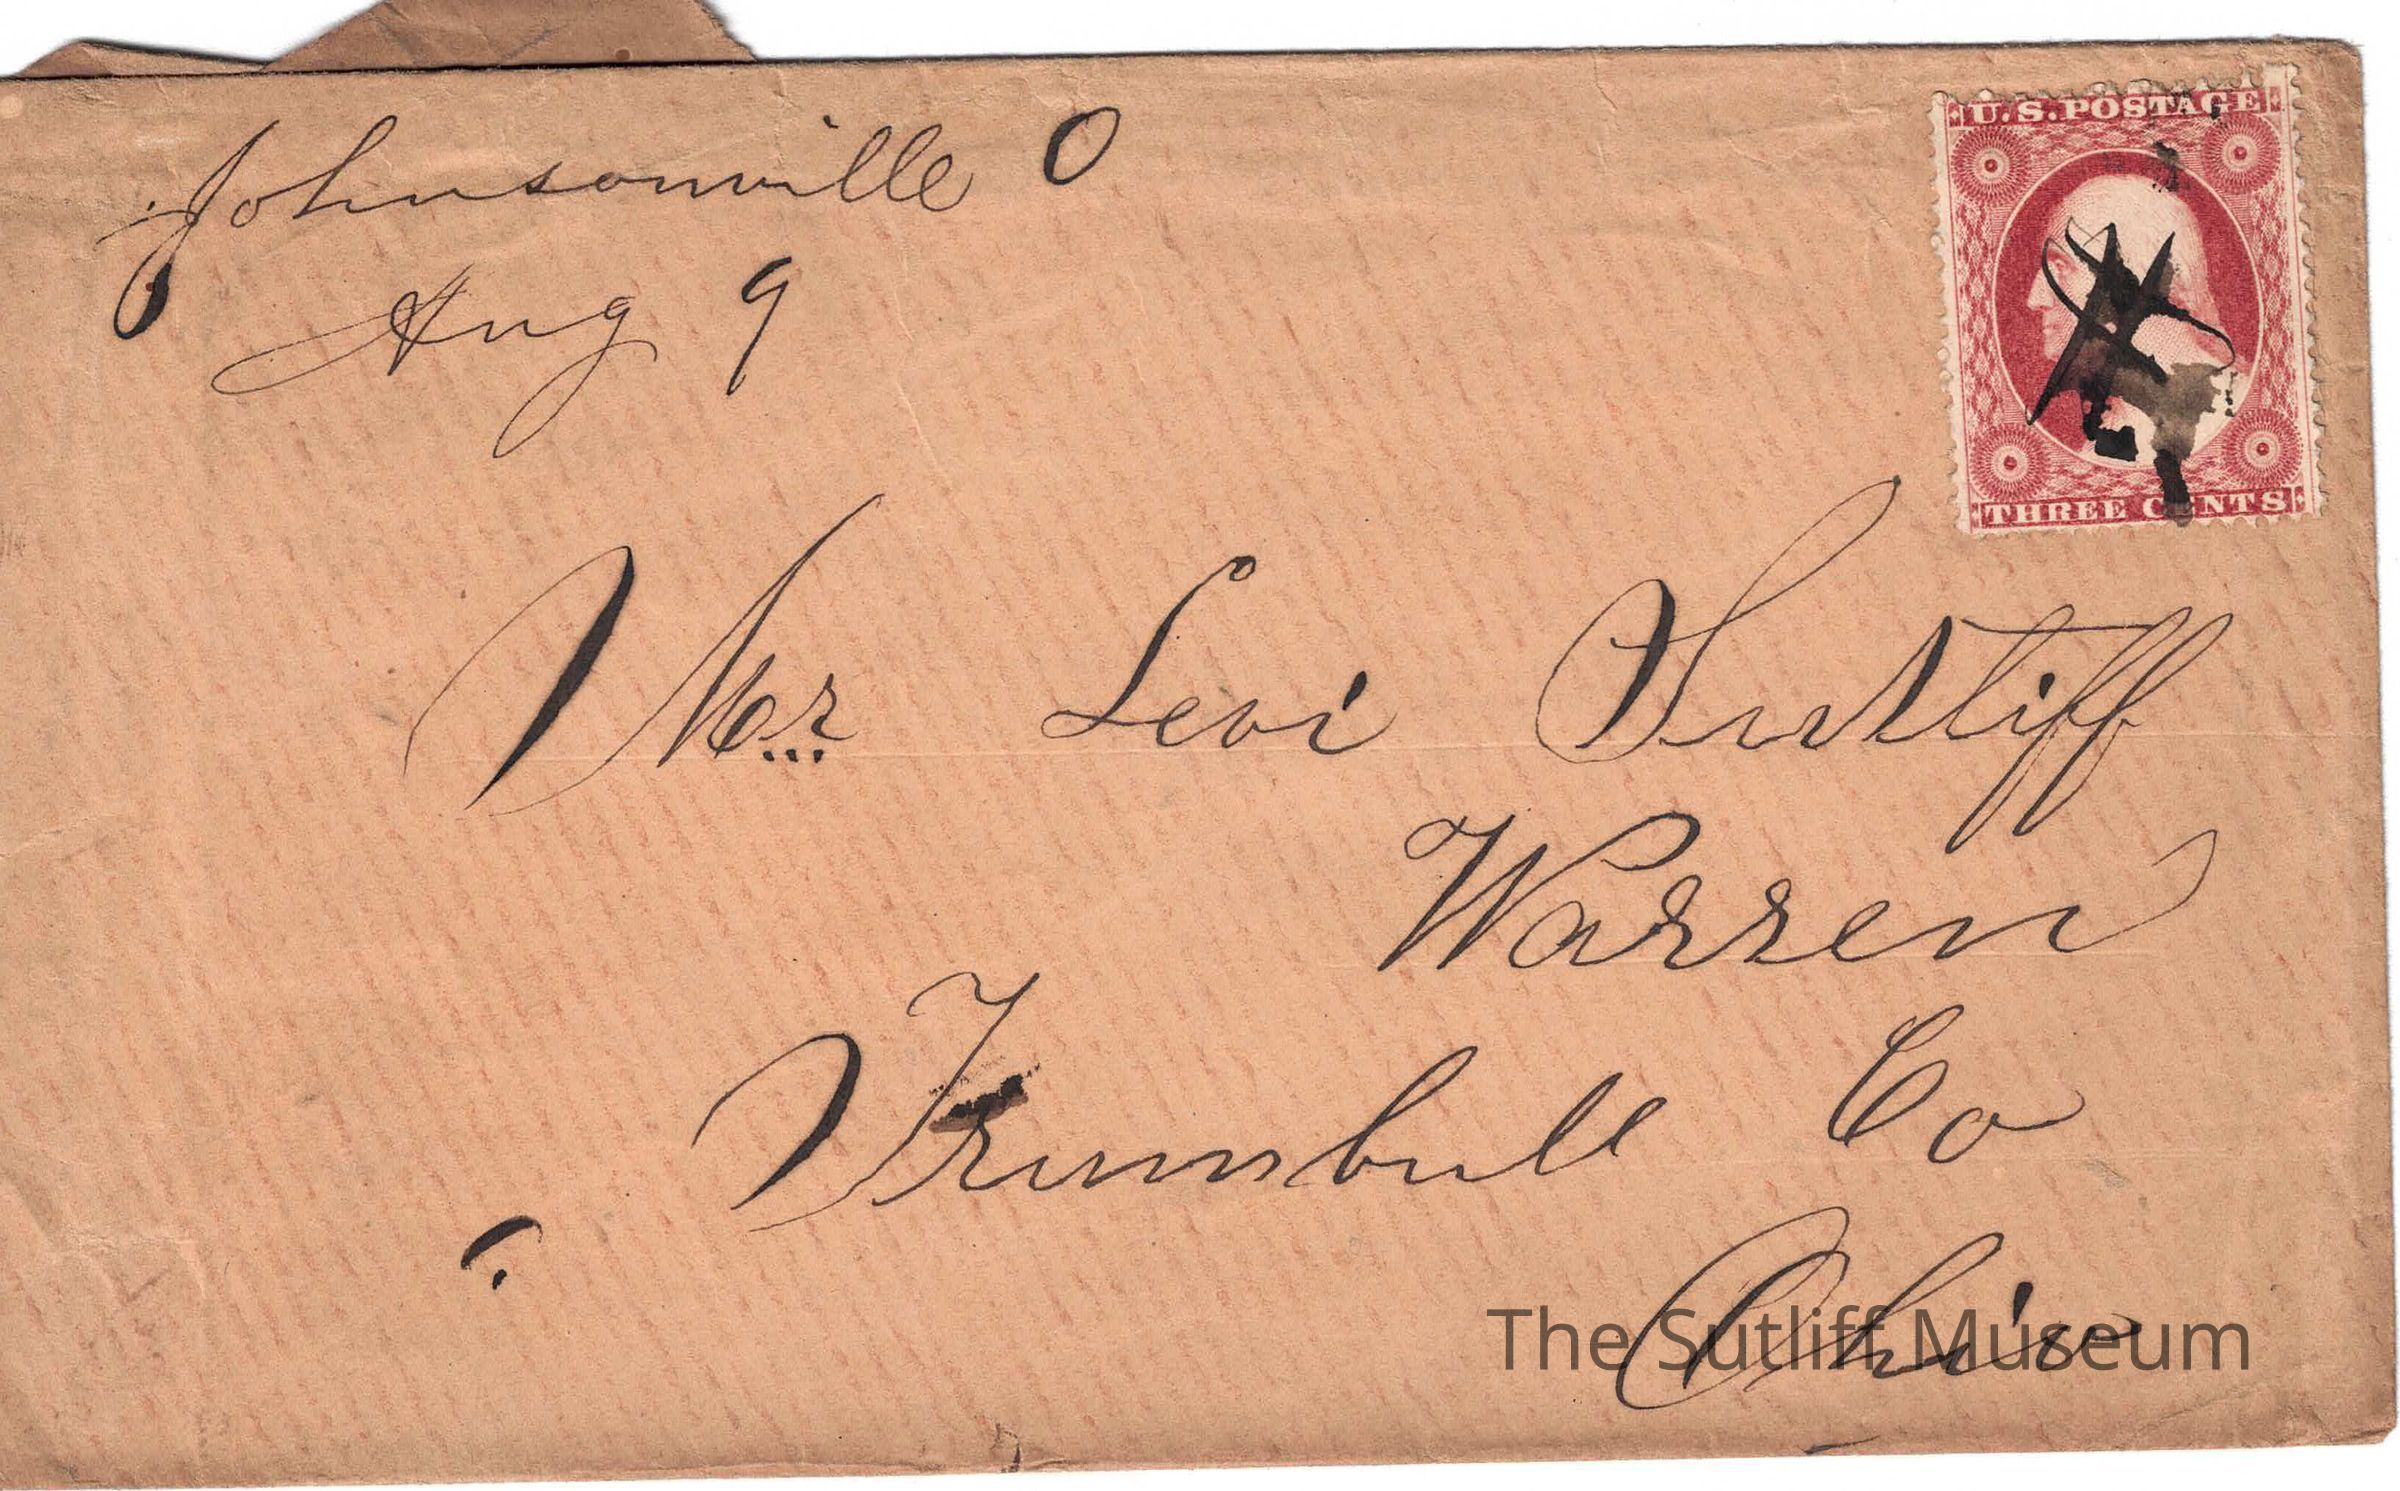 Johnsonville O
Aug 9
U.S. POSTAGE
THREE CENTS
Mr Levi Sutliff
Warren
Trumbull Co
Ohio
The Sutliff Museum